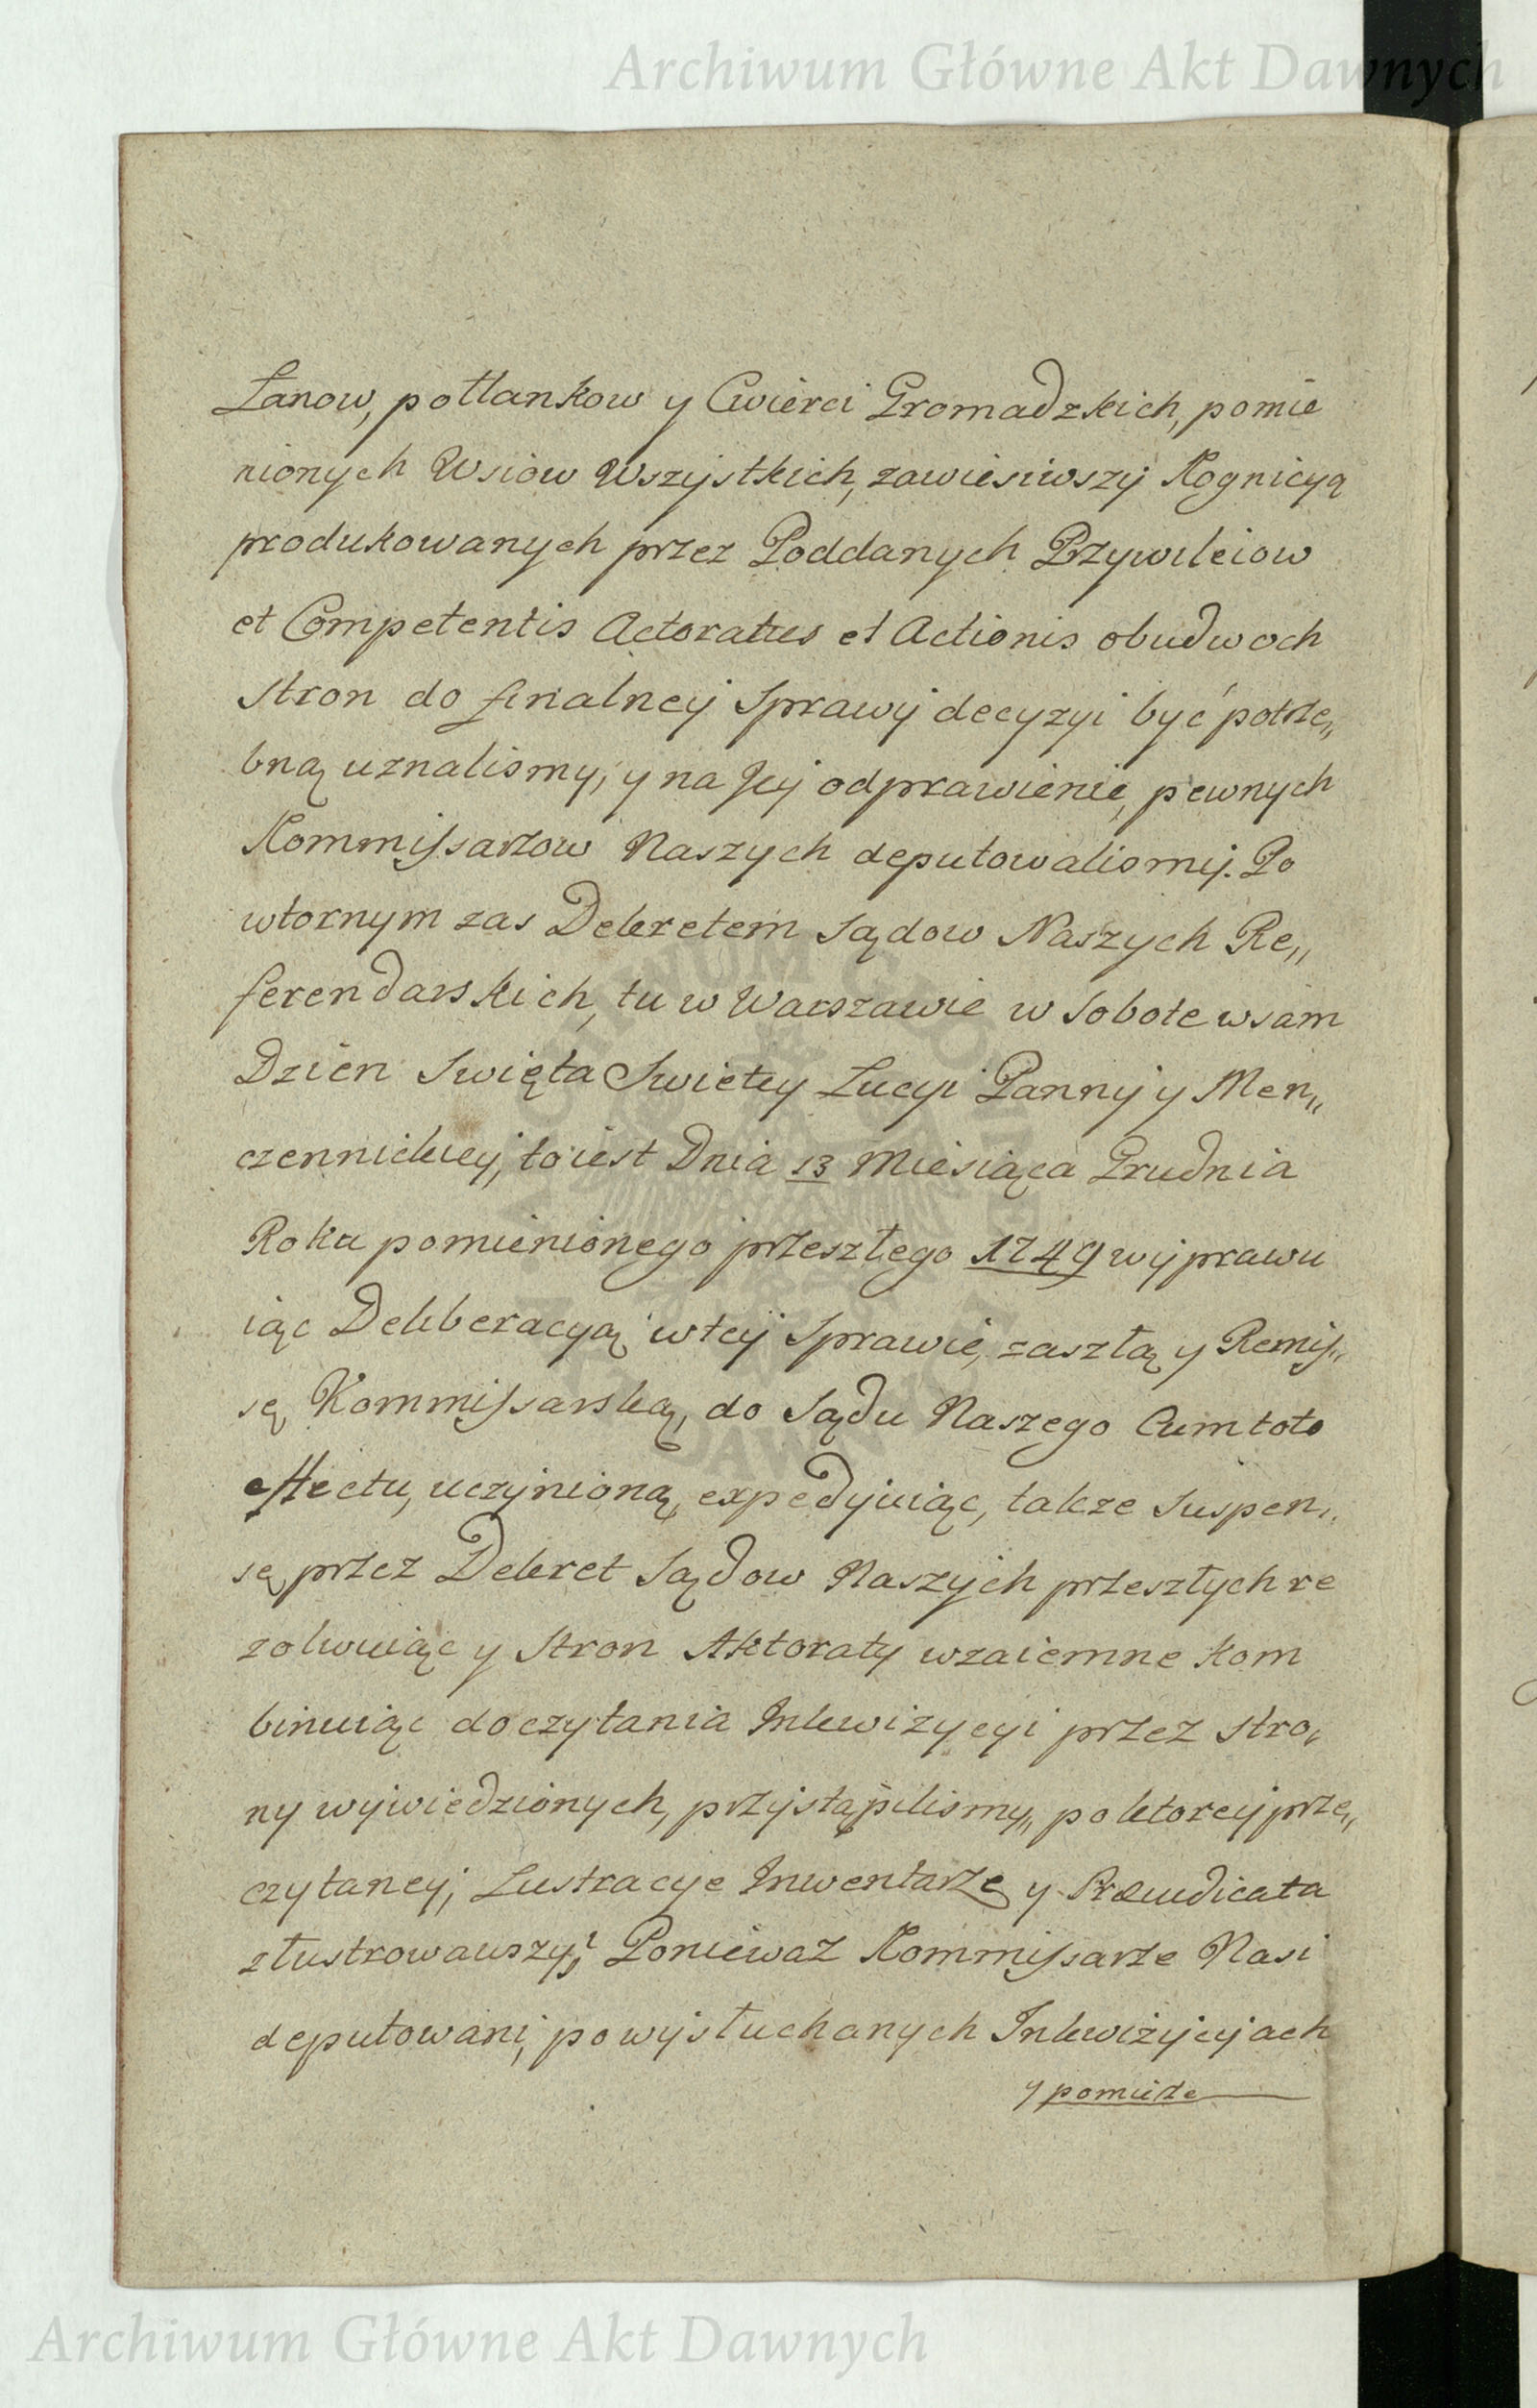 Archiwum Główne Akt Dawnych
Łanow, połłankow y Cwierci Gromadzkich, pomie
nionych Wsiow Wszystkich, zawiesiwszy Kognicyą
produkowanych przez Poddanych Przywileiow
et Competentis Actoratus et Actionis obudwoch
Stron do finalney Sprawy decyzyi być potrze„
bną uznalismy, y na Jey odprawienie, pewnych
Kommissarzow Naszych deputowalismy. Po
wtornym zas Dekretem Sądow Naszych Re„
ferendarskich, tu w Warszawie w Sobote wsam
Dzien Swięta Swietey Lucyi Panny y Men„
czennickiey, to iest Dnia 13 Miesiąca Grudnia
Roku pomienionego przeszłego 1749 wyprawu
iąc Deliberacyą wtey Sprawie, zaszłą y Remis„
sę Kommissarską, do Sądu Naszego Cum toto
effectu, uczynioną, expedyuiąc, takze Suspen„
sę przez Dekret Sądow Naszych przeszłych re
zolwuiąc y Stron Aktoraty wzaiemne kom
binuiąc do czytania Inkwizycyi przez Stro„
ny wywiedzionych, przystąpilismy, po ktorey prze„
czytaney, Lustracye Inwentarze y Præiudicata
zlustrowawszy; Poniewaz Kommissarze Nasi
deputowani, po wysłuchanych Inkwizycyach
y pomierze
Archiwum Główne Akt Dawnych